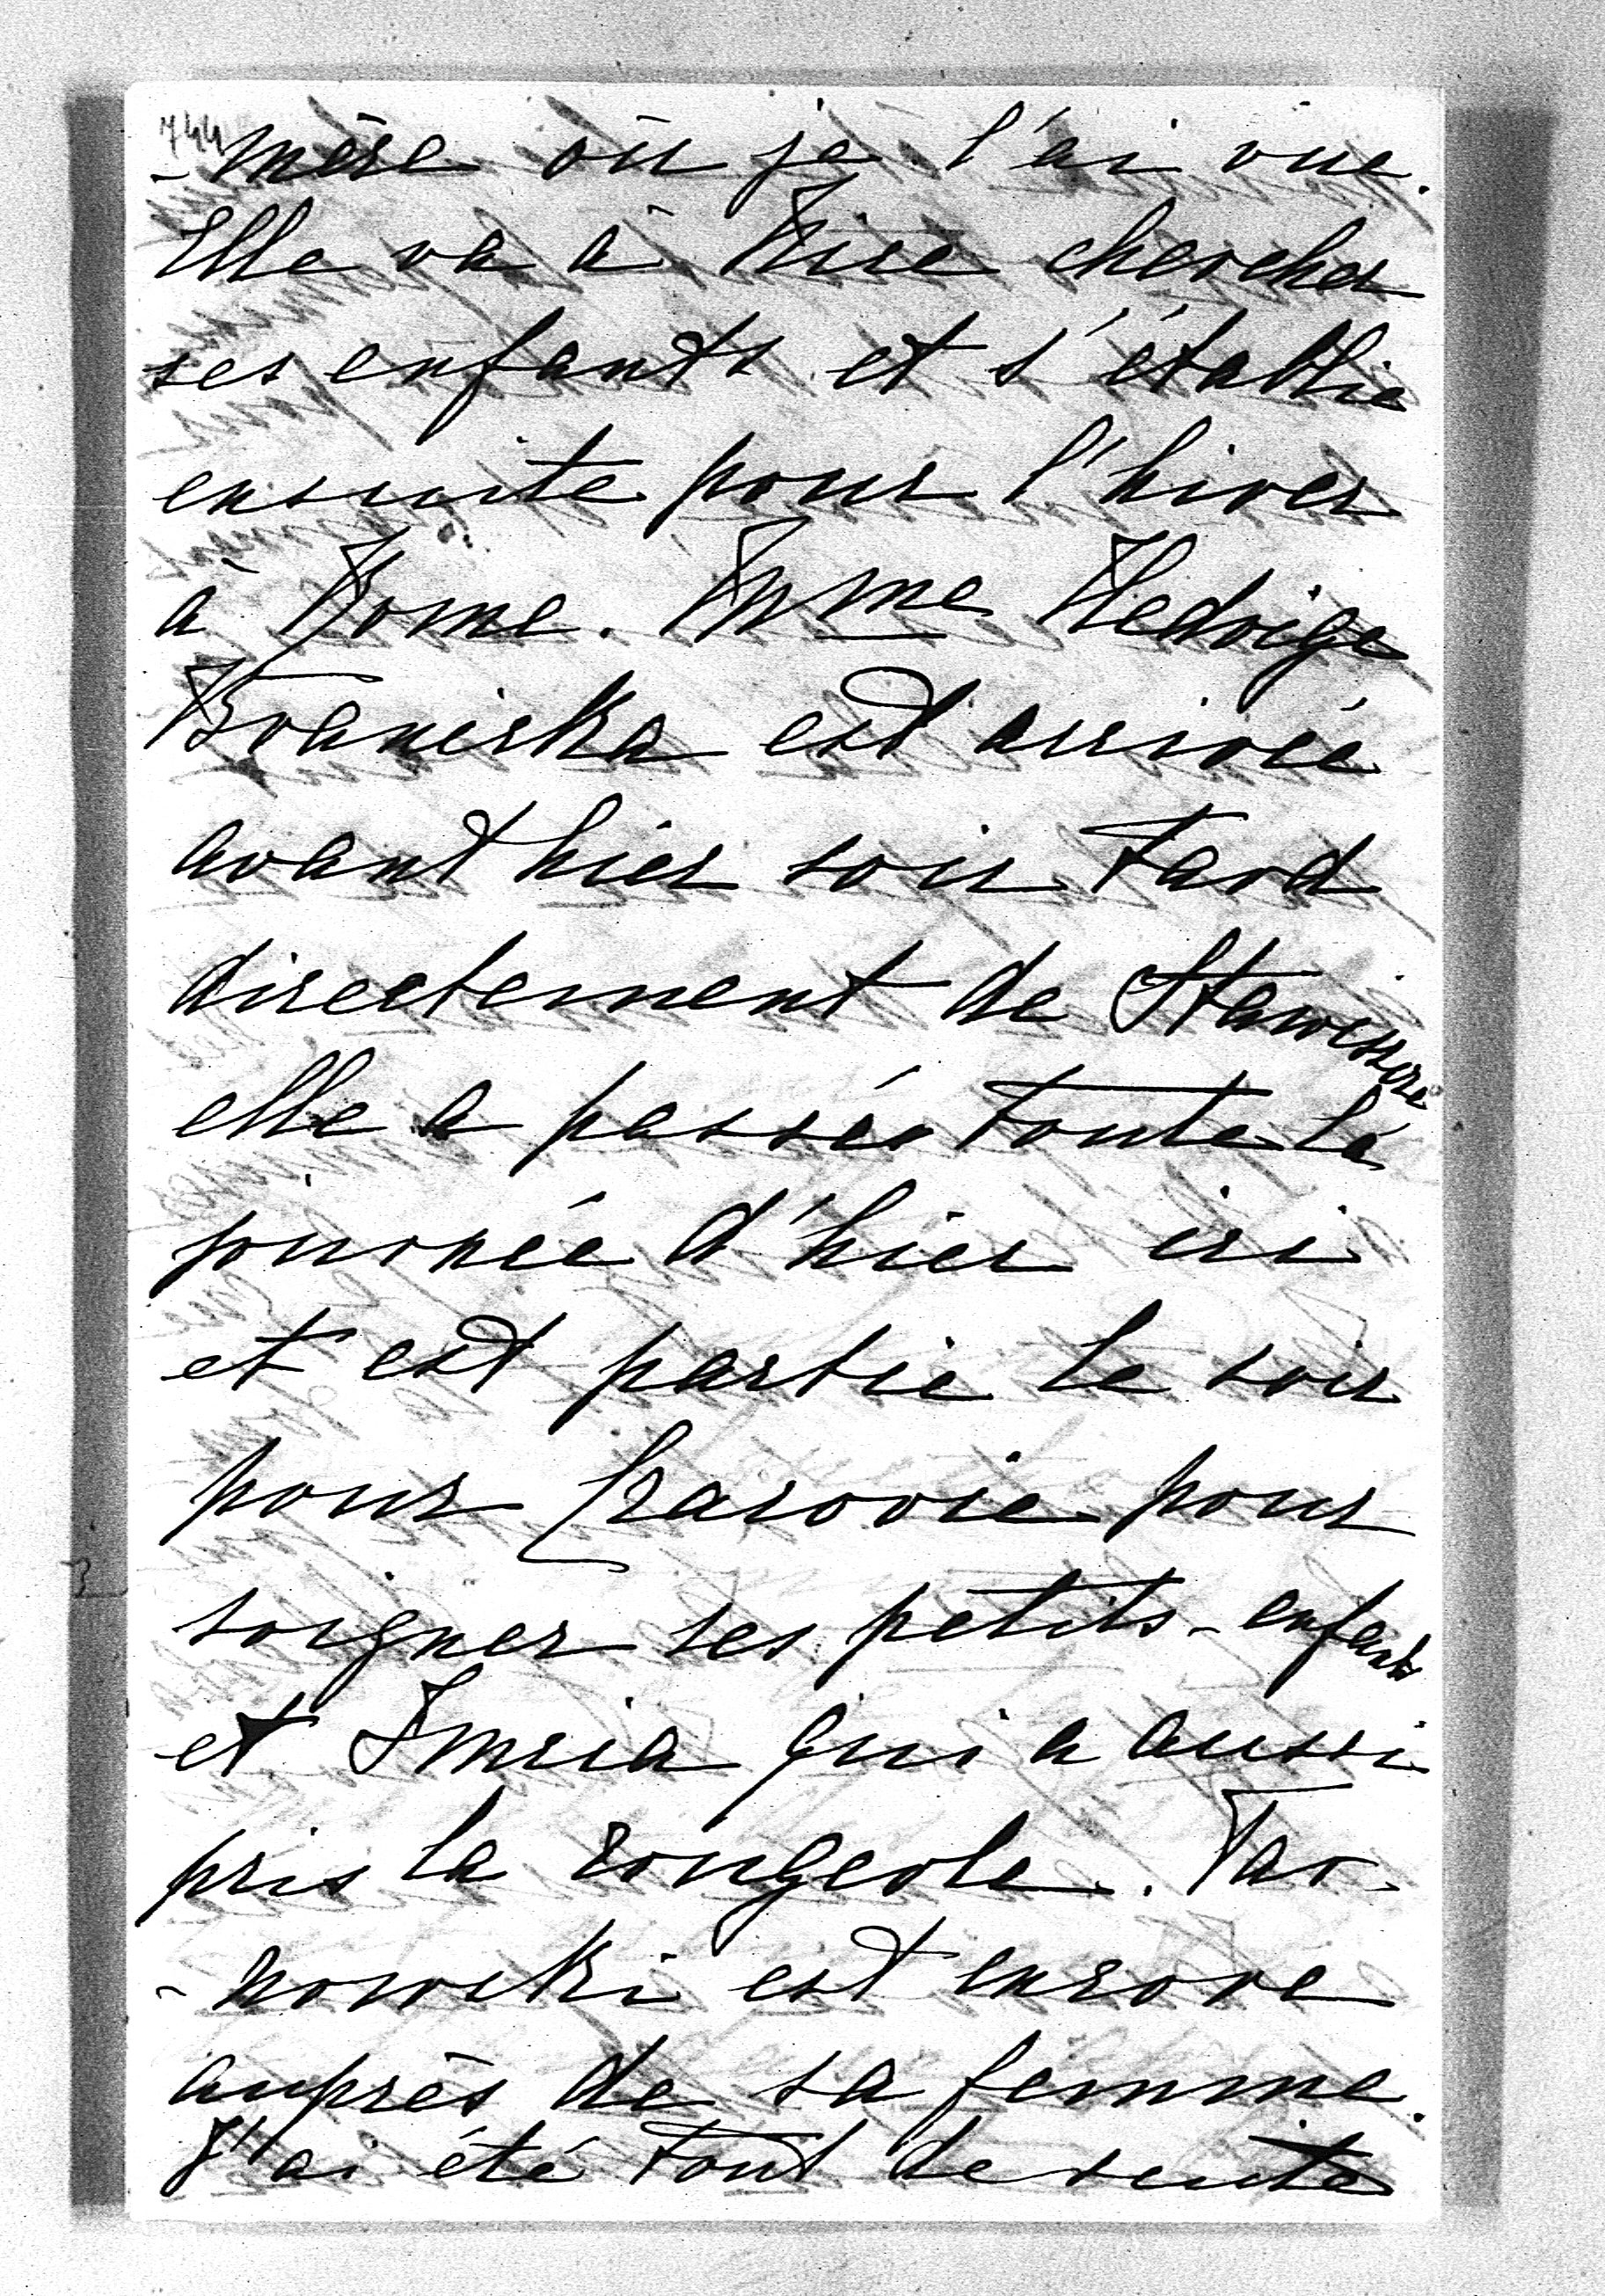 744
-mère où je l'ai vue.
Elle va à Nice chercher
ses enfants et s'établie
ensuite pour l'hiver
à Rome. Mme Hedvige
Braniska est arrivée
avant hier soir tard
directement de
elle a passée toute la
journée d'hier ici
et est partie le soir
pour Cracovie pour
soigner ses petits-enfants
et Imria qui a aussi
pris la rougeole. Tar-
-nowski est encore
auprès de sa femme.
J'ai été tout de suite